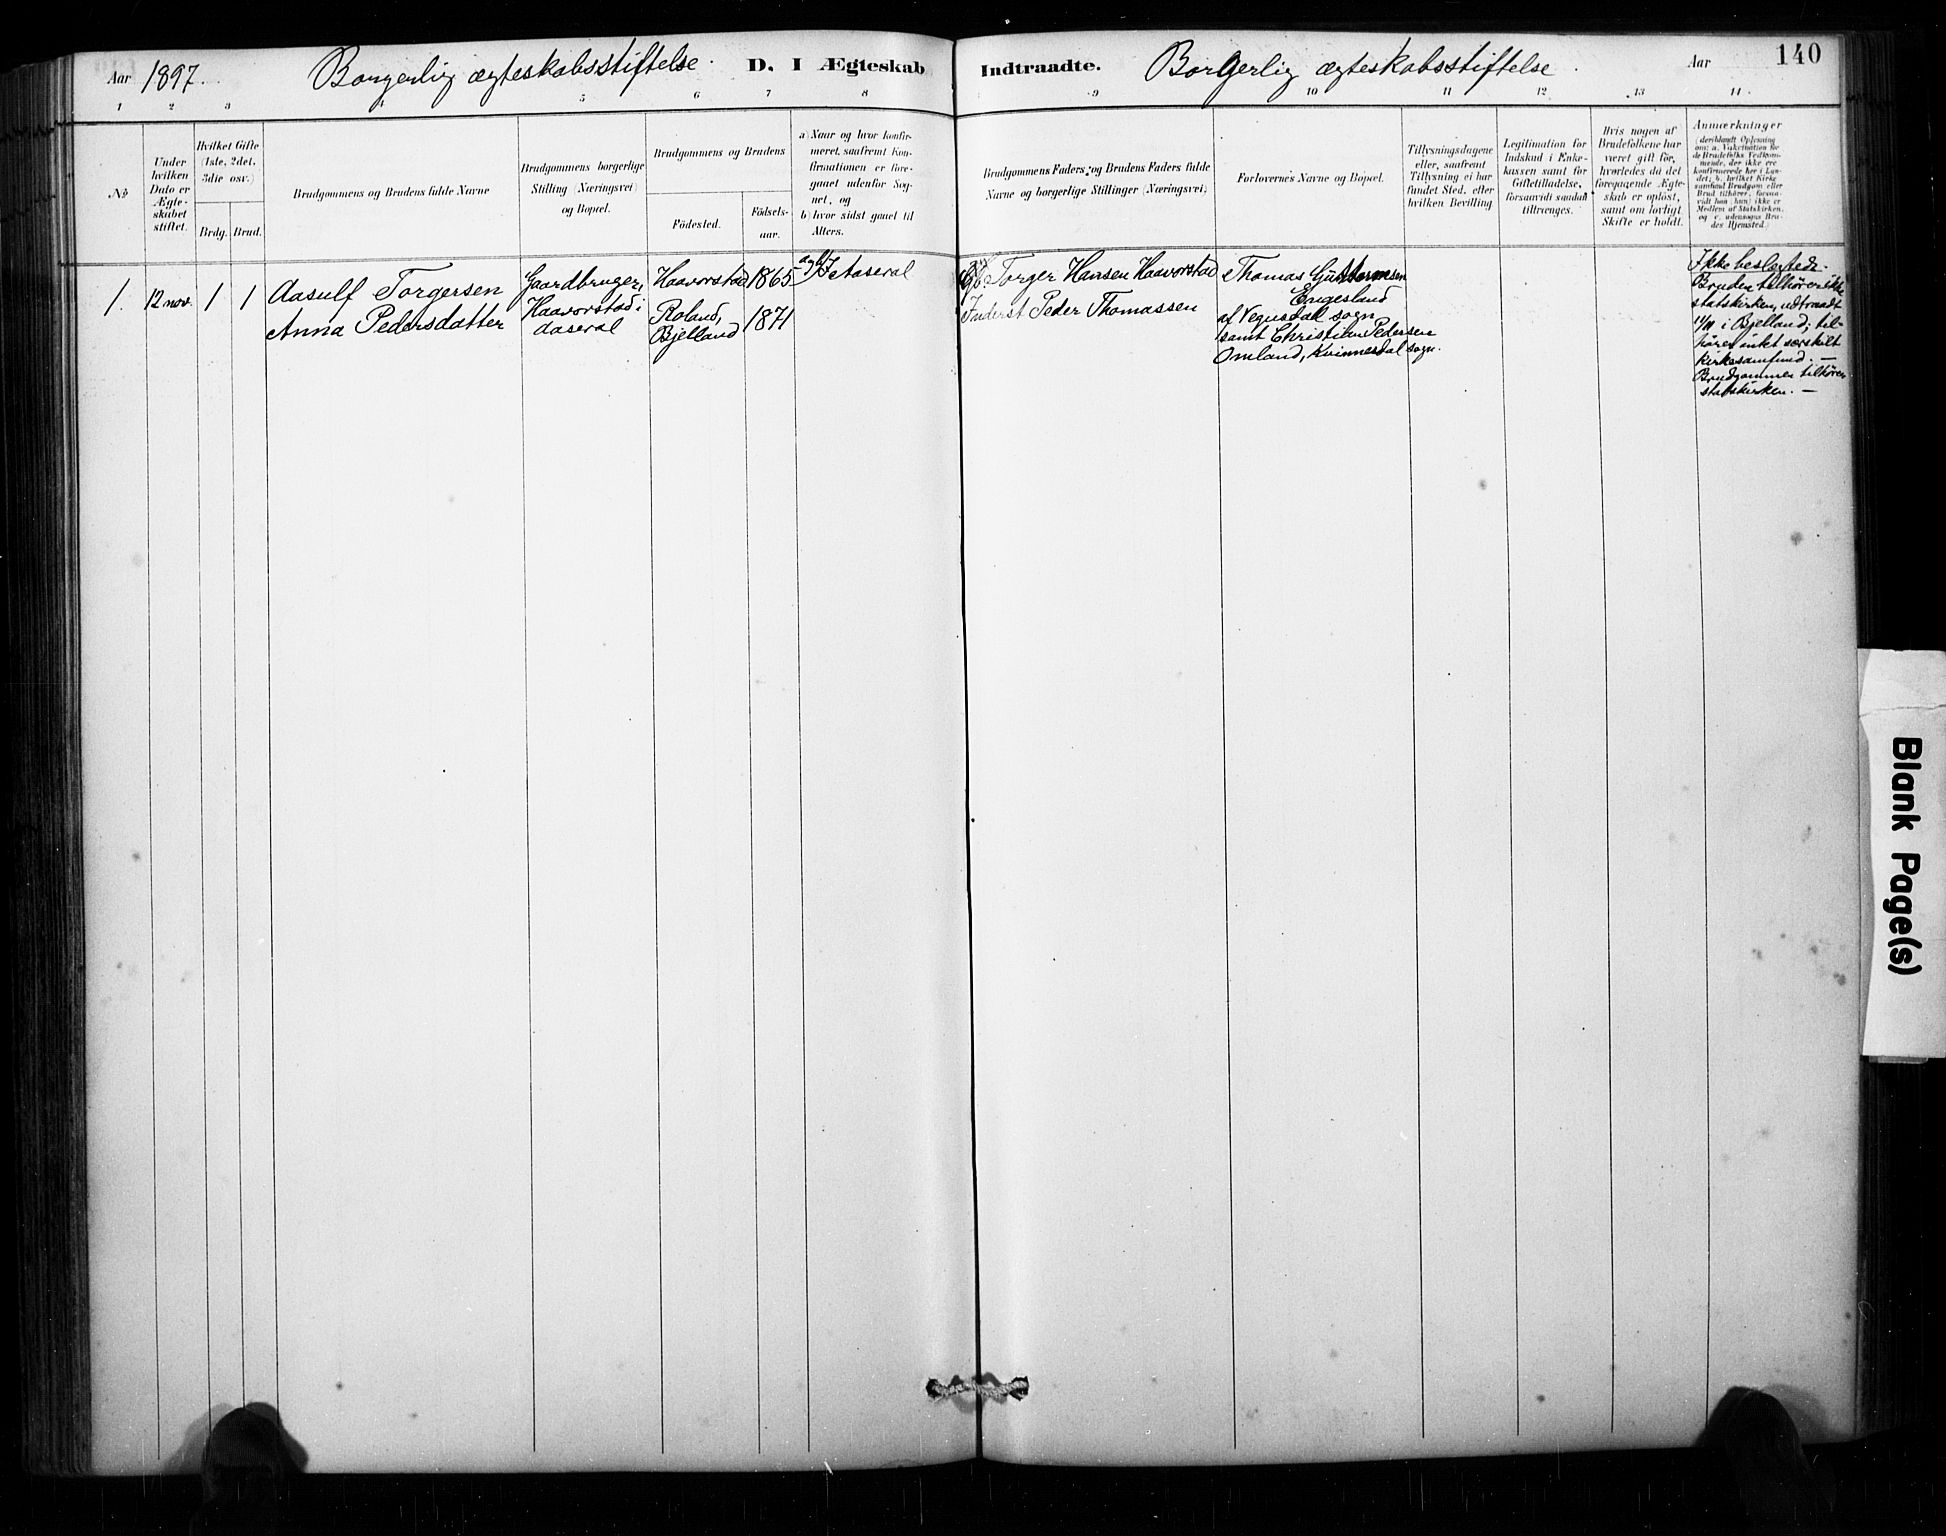 Aar 1897. Borgerlig ægteskabsstiftelse. D. I Ægteskab Indtraadte. Borgerlig ægteskabsstiftelse. Aar 140
1 2 3 4 5 6 7 8 9 10 11 12 13 14
No
Under
hvilken
Dato er
Ægte-
skabet
stiftet.
Hvilket Gifte
(1ste, 2det,
3die osv.)
Brdg. Brud.
Brudgommens og Brudens fulde Navne
Brudgommens borgerlige
Stilling (Næringsvei)
og Bopæl.
Brudgommens og Brudens
Fødested.
Fødsels-
aar.
a) Naar og hvor konfir-
meret, saafremt Kon-
firmationen er fore-
gaaet udenfor Sog-
net, og
b) hvor sidst gaaet til
Alters.
Brudgommens Faders og Brudens Faders fulde
Navne og borgerlige Stillinger (Næringsvei)
Forlovernes Navne og Bopæl.
Tillysningsdagene
eller, saafremt
Tillysning ei har
fundet Sted, efter
hvilken Bevilling
Legitimation for
Indskud i Enke-
kassen samt for
Giftetilladelse,
forsaavidt saadan
tiltrænges.
Hvis nogen af
Brudefolkene har
været gift før,
hvorledes da det
foregaaende Ægte-
skab er opløst,
samt om lovligt
Skifte er holdt.
Anmærkninger
(deriblandt Oplysning
om: a. Vaksination for
de Brudefolks Vedkom-
mende, der ikke ere
konfirmerede her i Lan-
det; b. hvilket Kirke
samfund Brudgom eller
Brud tilhører, forsaa-
vidt han (hun) ikke er
Medlem af Statskirken,
og c. udensogns Bru-
des Hjemsted.)
1. 12 nov. 1 1
Aasulf Torgersen
Anna Pedersdatter
Gaardbruger,
Haavorstad i
Aaseral
Haavorstad 1865
Roland, 1871
Bjelland
Aaseral
Torger Hansen Haavorstad
Inderst Peder Thomassen
Thomas
Engesland
af Vegusdal sogn
samt Christian Pedersen
Omland, Kvinnesdal sogn.
Ikke beslægtede.
Bruden tilhører ikke
statskirken, udtraadt
11/11 i Bjelland; til-
hører intet særskilt
kirkesamfund. —
Brudgommen tilhører
statskirken. —
Blank Page(s)